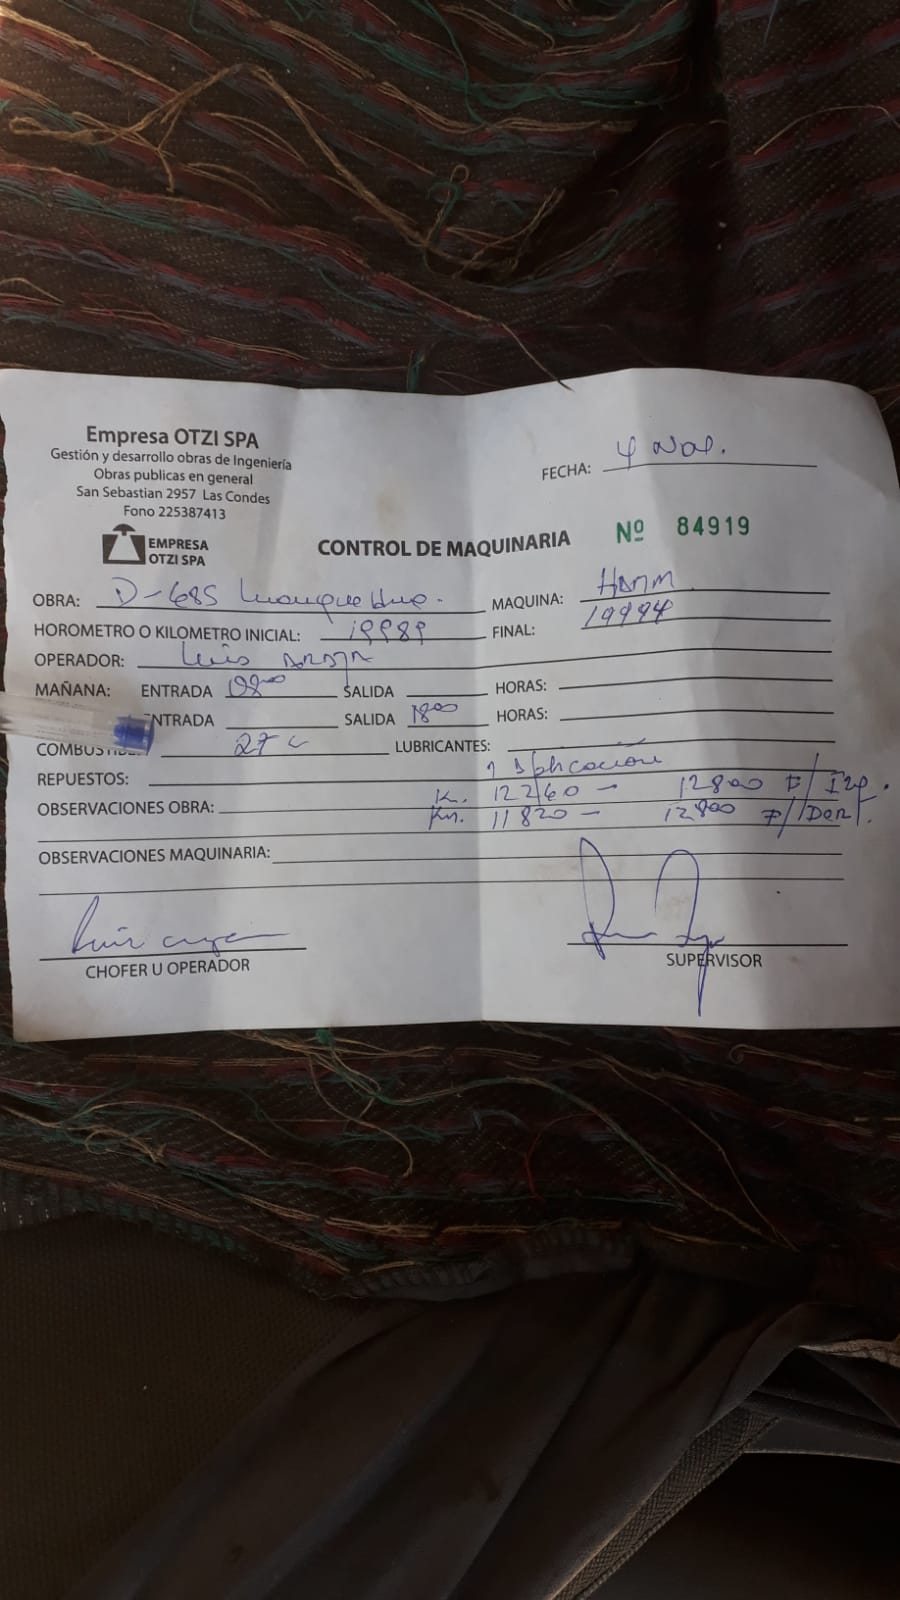 Empresa OTZI SPA
Gestión y desarrollo obras de Ingeniería
Obras publicas en general
San Sebastian 2957 Las Condes
Fono 225387413
EMPRESA
OTZI SPA
FECHA: 4 Nov.
CONTROL DE MAQUINARIA Nº 84919
OBRA: D-685
MAQUINA: HAMM
HOROMETRO O KILOMETRO INICIAL: 19989
FINAL: 19994
OPERADOR: Luis ARAYA
MAÑANA: ENTRADA SALIDA HORAS:
ENTRADA SALIDA 18⁰⁰ HORAS:
COMBUSTIBLE 27 L LUBRICANTES:
REPUESTOS: 1 Aplicación
OBSERVACIONES OBRA: K. 12260 - 12800 P/Izq.
Km. 11820 - 12800 P/Der.
OBSERVACIONES MAQUINARIA:
CHOFER U OPERADOR
SUPERVISOR